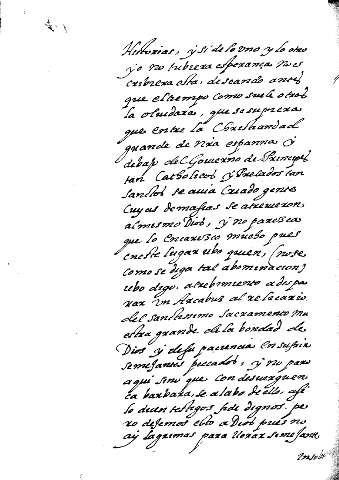 Historias, y si de lo vno y lo otro
yo no tubiera esperança no es
criviera esta. deseando antes
que el tiempo como suele otros
la oluidara, que se supiera
que entre la Christiandad
grande de nra españa y
debajo del Gouierno de Principes
tan Catholicos y Prelados tan
sanctos se auia criado gente
cuyas demasias se atreuieron
al mesmo Dios, y no paresca
que lo encaresco mucho pues
en este lugar vbo quien, (no se
como se diga tal abominacion)
vbo digo, atrebimiento a dispa
rar vn Arcabus al relicario
del santissimo sacramento mu
estra grande de la bondad de
Dios y de su paciencia en sufrir
semejantes peccados, y no paro
aqui sino que con desverguen
ca barbara, se alabo de ello, asi
lo dicen testigos fide dignos. pe
ro dejemos esto a Dios pues no
ay lagrimas para llorar semejante